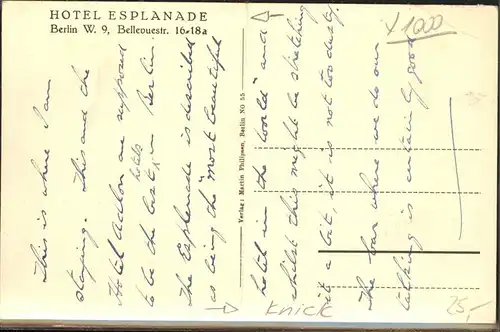 HOTEL ESPLANADE
Berlin W. 9, Bellevuestr. 16-18a
This is where I am
staying. This and the
Hotel Adlon are supposed
to be the best hotels in Berlin.
The Esplanade is described
as being the "most beautiful
hotel in the world" and
whilst this might be stretching
it a bit, it is not too dusty.
The bar where we do our
talking is certainly good
Verlag: Martin Philipsen, Berlin NO 55
Knick
1000
25,-